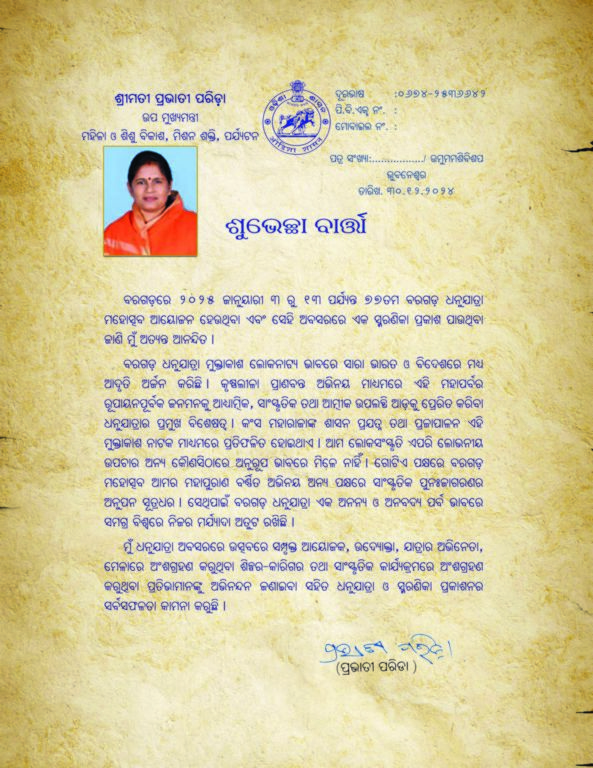 ଶ୍ରୀମତୀ ପ୍ରଭାତୀ ପରିଡ଼ା
ଉପ ମୁଖ୍ୟମନ୍ତ୍ରୀ
ମହିଳା ଓ ଶିଶୁ ବିକାଶ, ମିଶନ ଶକ୍ତି, ପର୍ଯ୍ୟଟନ
ଦୂରଭାଷ : :୦୬୭୪-୨୫୩୬୬୪୨
ପି.ବି.ଏକ୍ସ ନଂ. :
ମୋବାଇଲ ନଂ. :
ପତ୍ର ସଂଖ୍ୟା:................/ ଉମୁମମଶିବିଶପ
ଭୁବନେଶ୍ୱର
ତାରିଖ. ୩୦.୧୨.୨୦୨୪
ଶୁଭେଚ୍ଛା ବାର୍ତ୍ତା
ବରଗଡ଼ରେ ୨୦୨୫ ଜାନୁୟାରୀ ୩ ରୁ ୧୩ ପର୍ଯ୍ୟନ୍ତ ୭୭ତମ ବରଗଡ଼ ଧନୁଯାତ୍ରା
ମହୋତ୍ସବ ଆୟୋଜନ ହେଉଥିବା ଏବଂ ସେହି ଅବସରରେ ଏକ ସ୍ମରଣିକା ପ୍ରକାଶ ପାଉଥିବା
ଜାଣି ମୁଁ ଅତ୍ୟନ୍ତ ଆନନ୍ଦିତ ।
ବରଗଡ଼ ଧନୁଯାତ୍ରା ମୁକ୍ତାକାଶ ଲୋକନାଟ୍ୟ ଭାବରେ ସାରା ଭାରତ ଓ ବିଦେଶରେ ମଧ୍ୟ
ଆଦୃତି ଅର୍ଜନ କରିଛି । କୃଷ୍ଣଲୀଳା ପ୍ରାଣବନ୍ତ ଅଭିନୟ ମାଧ୍ୟମରେ ଏହି ମହାପର୍ବର
ରୂପାୟନପୂର୍ବକ ଜନମନକୁ ଆଧ୍ୟାତ୍ମିକ, ସାଂସ୍କୃତିକ ତଥା ଆତ୍ମୀକ ଉପଲବ୍ଧି ଆଡ଼କୁ ପ୍ରେରିତ କରିବା
ଧନୁଯାତ୍ରାର ପ୍ରମୁଖ ବିଶେଷତ୍ୱ । କଂସ ମହାରାଜାଙ୍କ ଶାସନ ପ୍ରଯତ୍ନ ତଥା ପ୍ରଜାପାଳନ ଏହି
ମୁକ୍ତାକାଶ ନାଟକ ମାଧ୍ୟମରେ ପ୍ରତିଫଳିତ ହୋଇଥାଏ । ଆମ ଲୋକସଂସ୍କୃତି ଏପରି ଲୋଭନୀୟ
ଉପଚାର ଅନ୍ୟ କୌଣସିଠାରେ ଅନୁରୂପ ଭାବରେ ମିଳେ ନାହିଁ । ଗୋଟିଏ ପକ୍ଷରେ ବରଗଡ଼
ମହୋତ୍ସବ ଆମର ମହାପୁରାଣ ବର୍ଣ୍ଣିତ ଅଭିନୟ ଅନ୍ୟ ପକ୍ଷରେ ସାଂସ୍କୃତିକ ପୁନଃଜାଗରଣର
ଅନୁପନ ସୂତ୍ରଧର । ସେଥିପାଇଁ ବରଗଡ଼ ଧନୁଯାତ୍ରା ଏକ ଅନନ୍ୟ ଓ ଅନବଦ୍ୟ ପର୍ବ ଭାବରେ
ସମଗ୍ର ବିଶ୍ୱରେ ନିଜର ମର୍ଯ୍ୟାଦା ଅତୁଟ ରଖିଛି ।
ମୁଁ ଧନୁଯାତ୍ରା ଅବସରରେ ଉତ୍ସବରେ ସମ୍ପୃକ୍ତ ଆୟୋଜକ, ଉଦ୍ୟୋକ୍ତା, ଯାତ୍ରାର ଅଭିନେତା,
ମେଳାରେ ଅଂଶଗ୍ରହଣ କରୁଥିବା ଶିଳ୍ପର-କାରିଗର ତଥା ସାଂସ୍କୃତିକ କାର୍ଯ୍ୟକ୍ରମରେ ଅଂଶଗ୍ରହଣ
କରୁଥିବା ପ୍ରତିଭାମାନଙ୍କୁ ଅଭିନନ୍ଦନ ଜଣାଇବା ସହିତ ଧନୁଯାତ୍ରା ଓ ସ୍ମରଣିକା ପ୍ରକାଶନର
ସର୍ବସଫଳତା କାମନା କରୁଛି ।
ପ୍ରଭାତୀ ପରିଡ଼ା
(ପ୍ରଭାତୀ ପରିଡା )